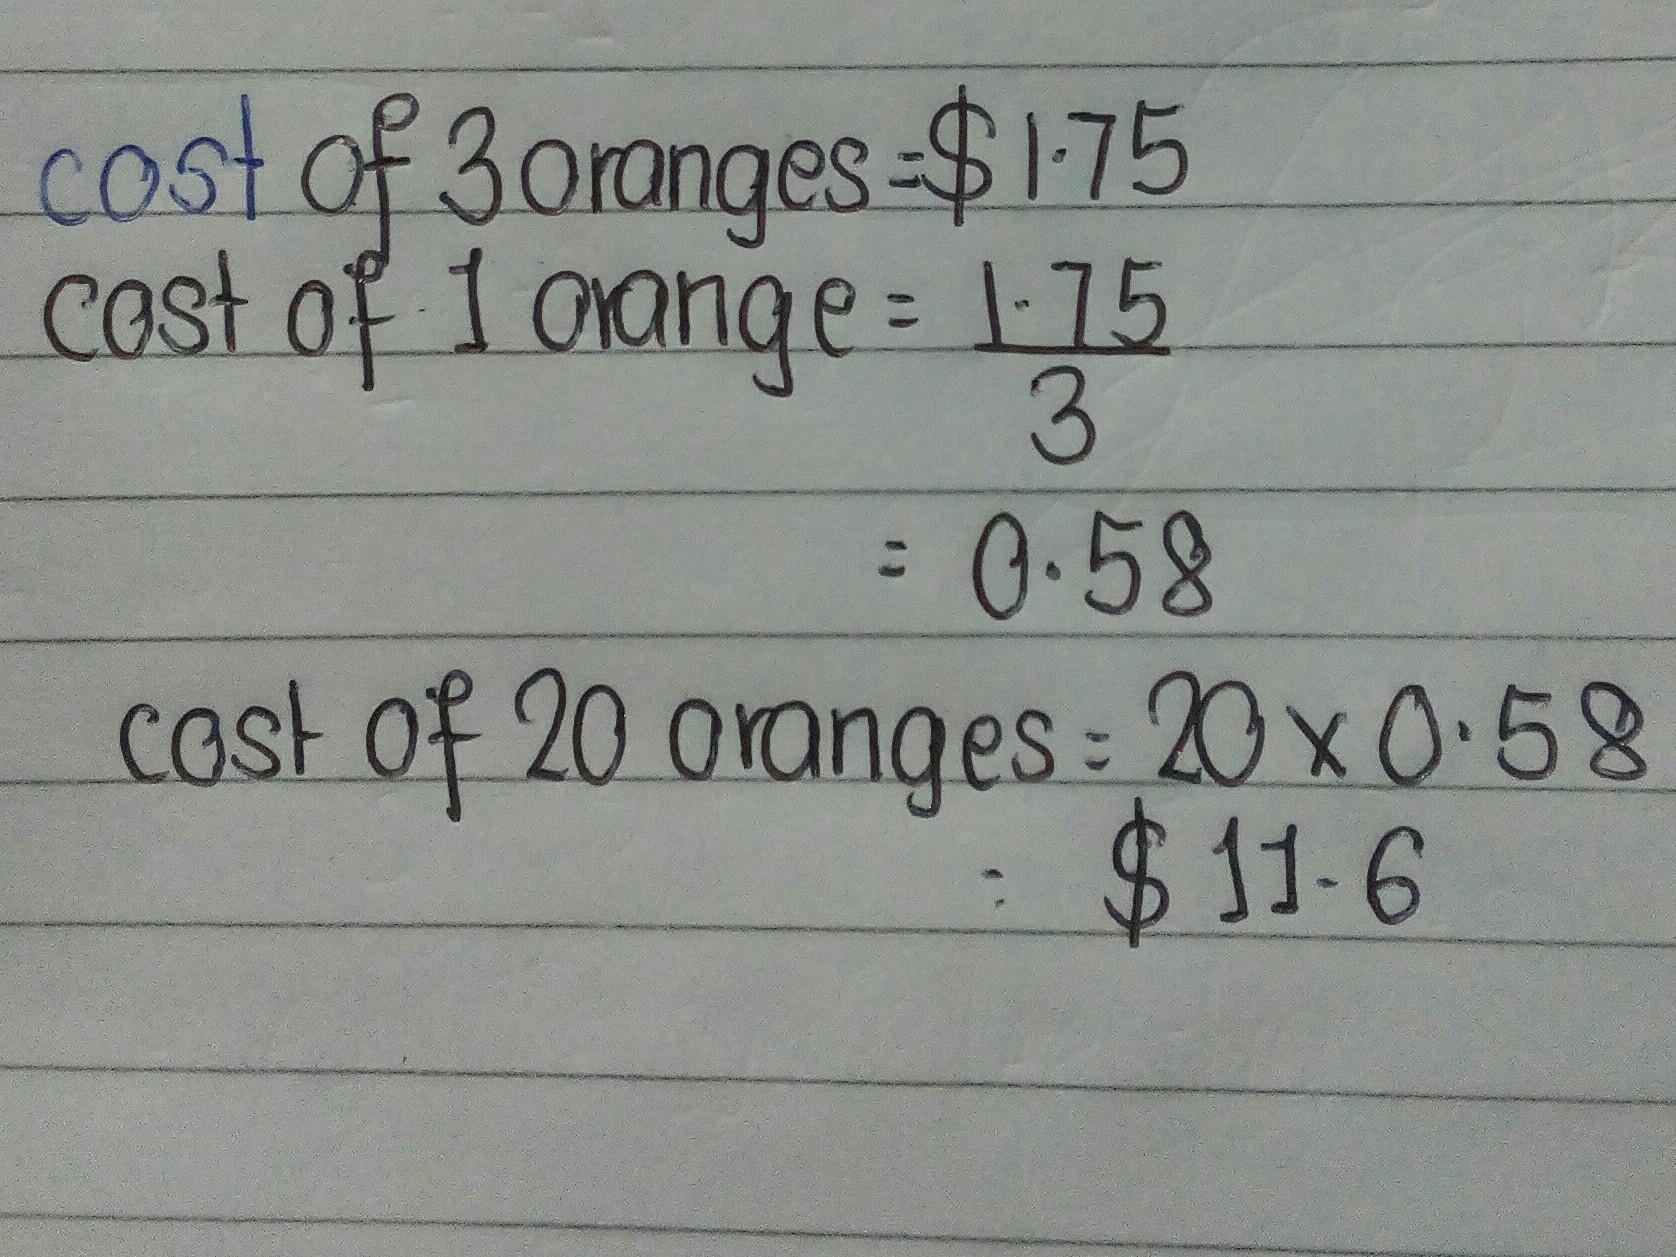 cost of 3 oranges = $1.75
cost of 1 orange = 1.75
3
= 0.58
cost of 20 oranges = 20 x 0.58
= $11.6